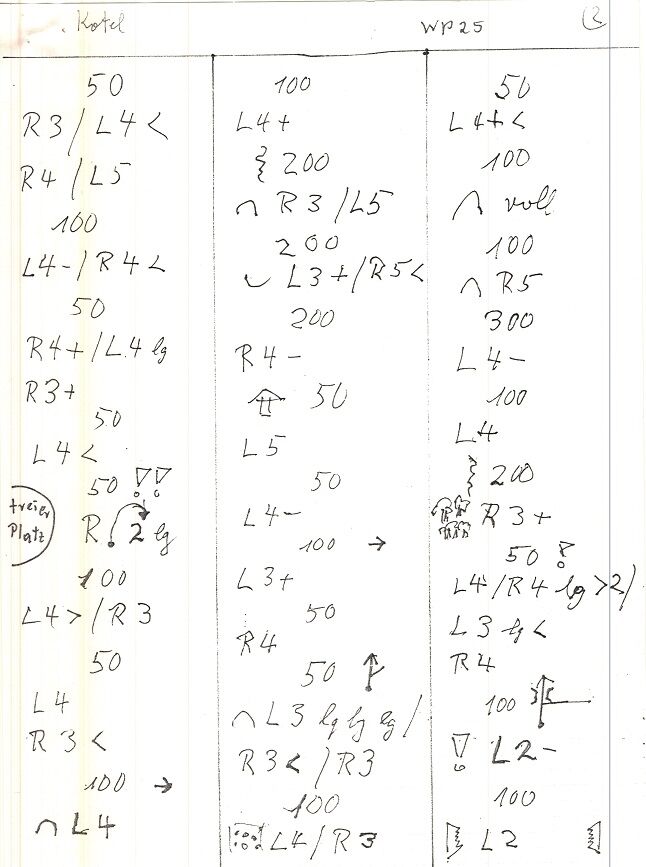 Kotel WP25 2
50
R3/L4<
R4/L5
100
L4-/R4<
50
R4+/L4 lg
R3+
50
L4<
50 !!
freier
Platz
R 2 lg
100
L4>/R3
50
L4
R3<
100 →
∩ L4
100
L4+
200
∩ R3/L5
200
◡ L3+/R5<
200
R4-
50
L5
50
L4-
100 →
L3+
50
R4
50
∩ L3 lg lg lg/
R3</R3
100
L4/R3
50
L4+<
100
∩ voll
100
∩ R5
300
L4-
100
L4
200
R3+
50 !
L4/R4 lg >2/
L3 lg<
R4
100
! L2-
100
L2